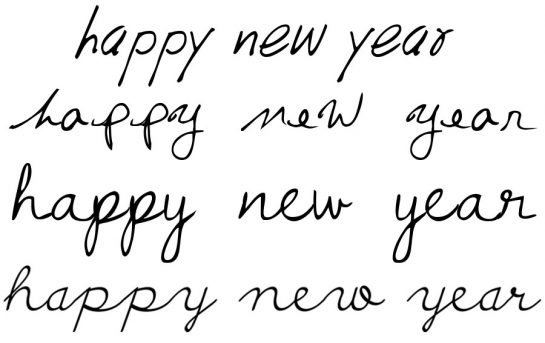 happy new year
happy new year
happy new year
happy new year